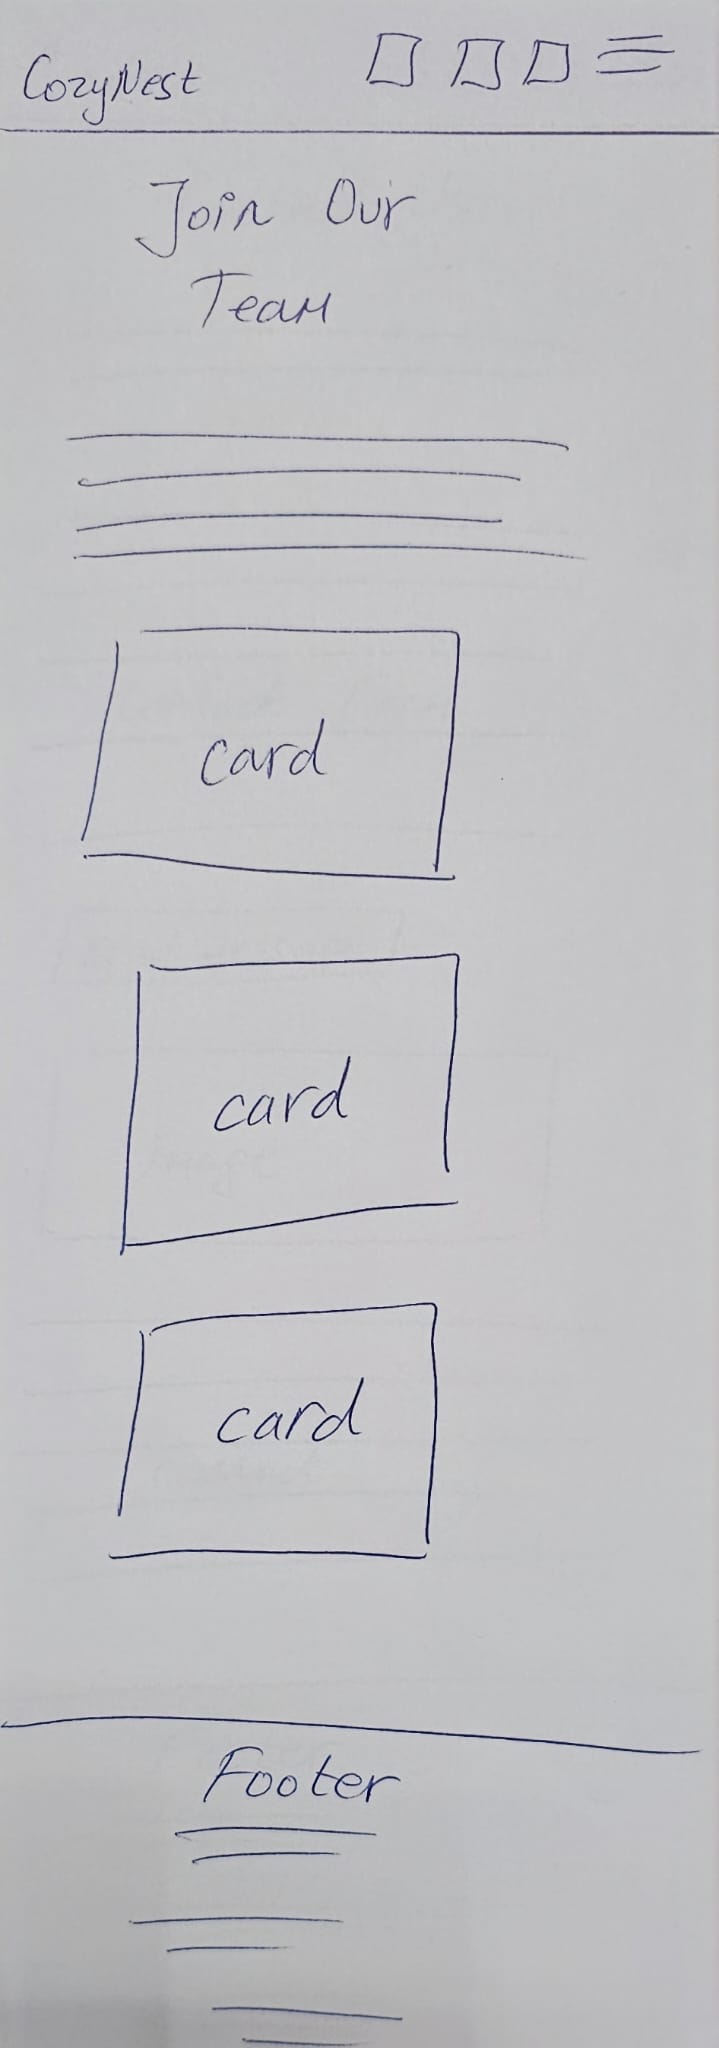 CozyNest
Join Our
Team
card
card
card
Footer